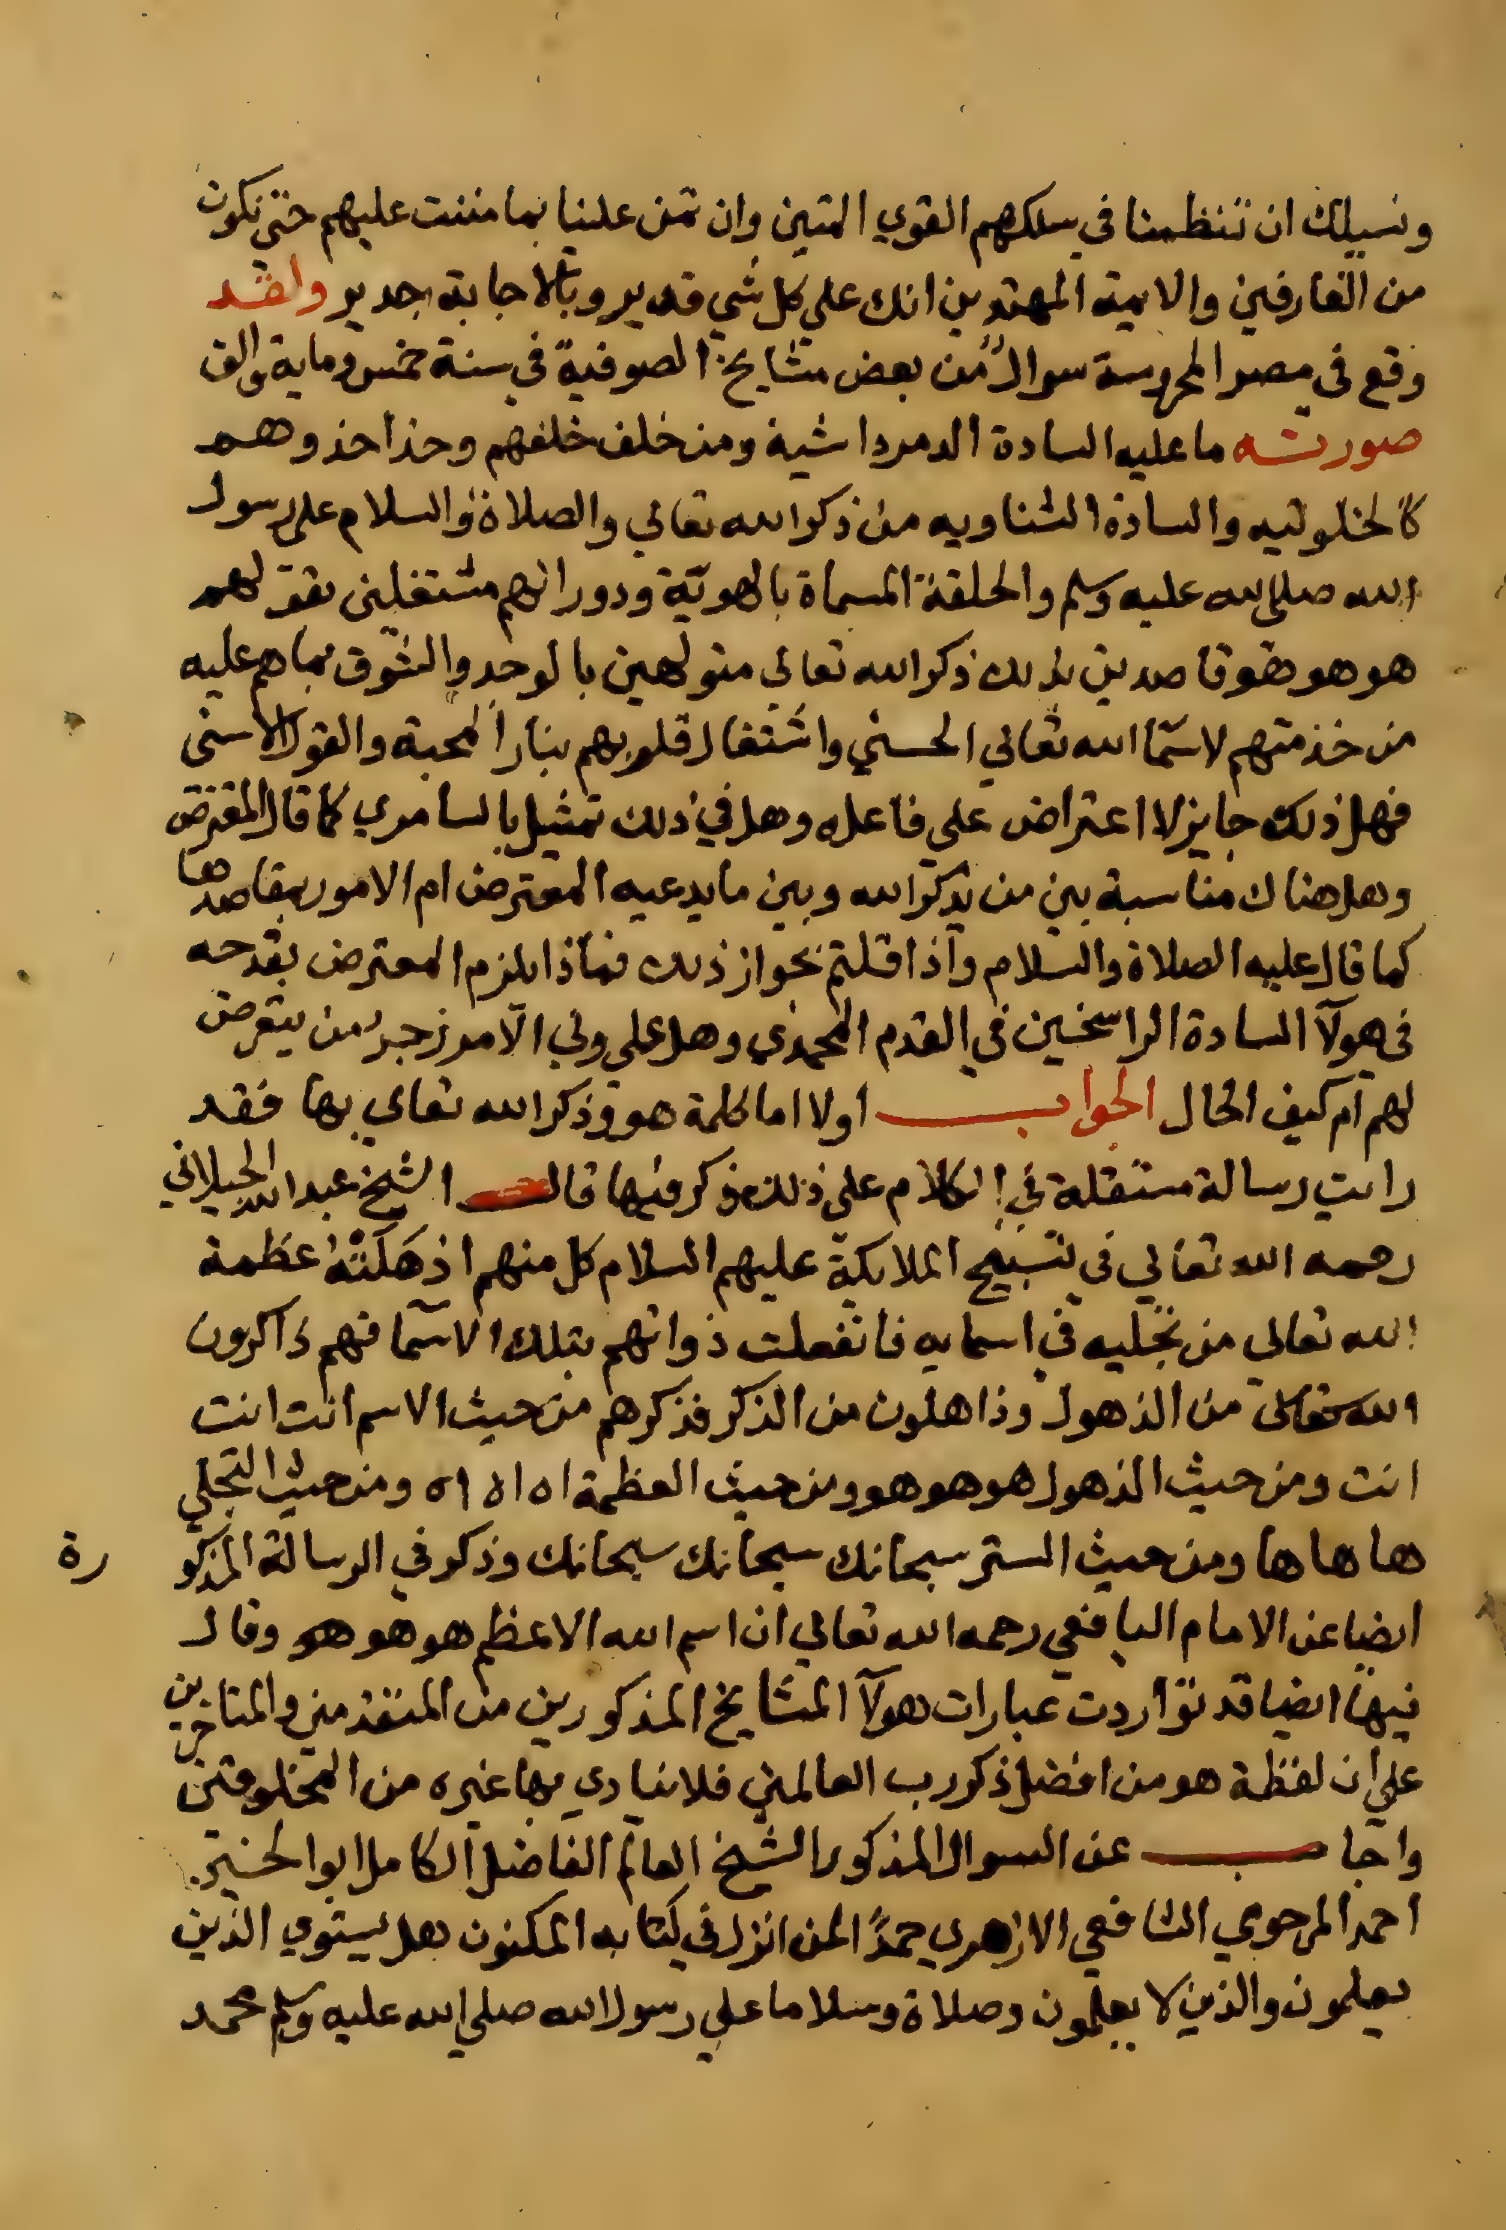 ونسيلك ان تنظمنا في سلكهم القوي المتين وان تمن علينا بما مننت عليهم حتي نكون
من العارفين والايمة المهتدين انك علي كل شي قدير وبالاجابة جدير ولقد
وقع في مصر المحروسة سوال من بعض مشايخ الصوفية في سنة خمس وماية والف
صورته ما عليه السادة الدمرداشية ومن خلف خلفهم وحذا حذوهم
كالخلوتيه والسادة الشناويه من ذكر الله تعالي والصلاة والسلام على رسول
الله صلى الله عليه وسلم والحلقة المسماة بالهوية ودورانهم مشتغلين بقولهم
هو هو هو قاصدين بذلك ذكر الله تعالي متولهين بالوجد والشوق بما هم عليه
من خدمتهم لاسما الله تعالي الحسني واشتغال قلوبهم بنار المحبة والقول الاسنى
فهل ذلك جايز لا اعتراض علي فاعله وهل في ذلك تمثيل بالسامري كما قال المعترض
وهل هناك مناسبة بين من يذكر الله وبين ما يدعيه المعترض ام الامور بمقاصدها
كما قال عليه الصلاة والسلام واذا قلتم بجواز ذلك فماذا يلزم المعترض بقدحه
في هولآ السادة الراسخين في القدم المحمدي وهل علي ولي الامر زجر من يتعرض
لهم ام كيف الحال الجواب اولا اما كلمة هو وذكر الله تعالي بها فقد
رايت رسالة مستقلة في الكلام على ذلك ذكر فيها قال الشيخ عبد الله الجيلاني
رحمه الله تعالي في تسبيح الملايكة عليهم السلام كل منهم اذهلته عظمة
الله تعالي من تجليه في اسمايه فانفعلت ذواتهم بتلك الاسما فهم ذاكرون
الله تعالى من الذهول وذاهلون من الذكر فذكرهم من حيث الاسم انت انت
انت ومن حيث الذهول هو هو هو ومن حيث العظمة اه اه اه ومن حيث التجلي
ها ها ها ومن حيث الستر سبحانك سبحانك سبحانك وذكر في الرسالة المذكو
رة
ايضا عن الامام اليافعي رحمه الله تعالي ان اسم الله الاعظم هو هو هو وقال
فيها ايضا قد تواردت عبارات هولآ المشايخ المذكورين من المتقدمين والمتاخرين
علي ان لفظة هو من افضل ذكر رب العالمين فلا ينادي بها غيره من المخلوقين
واجاب عن السوال المذكور الشيخ العالم الفاضل الكامل ابو الخير
احمد المرحومي الشافعي الازهري حمدًا لمن انزل في كتابه المكنون هل يستوي الذين
يعلمون والذين لا يعلمون وصلاة وسلاما علي رسول الله صلي الله عليه وسلم محمد